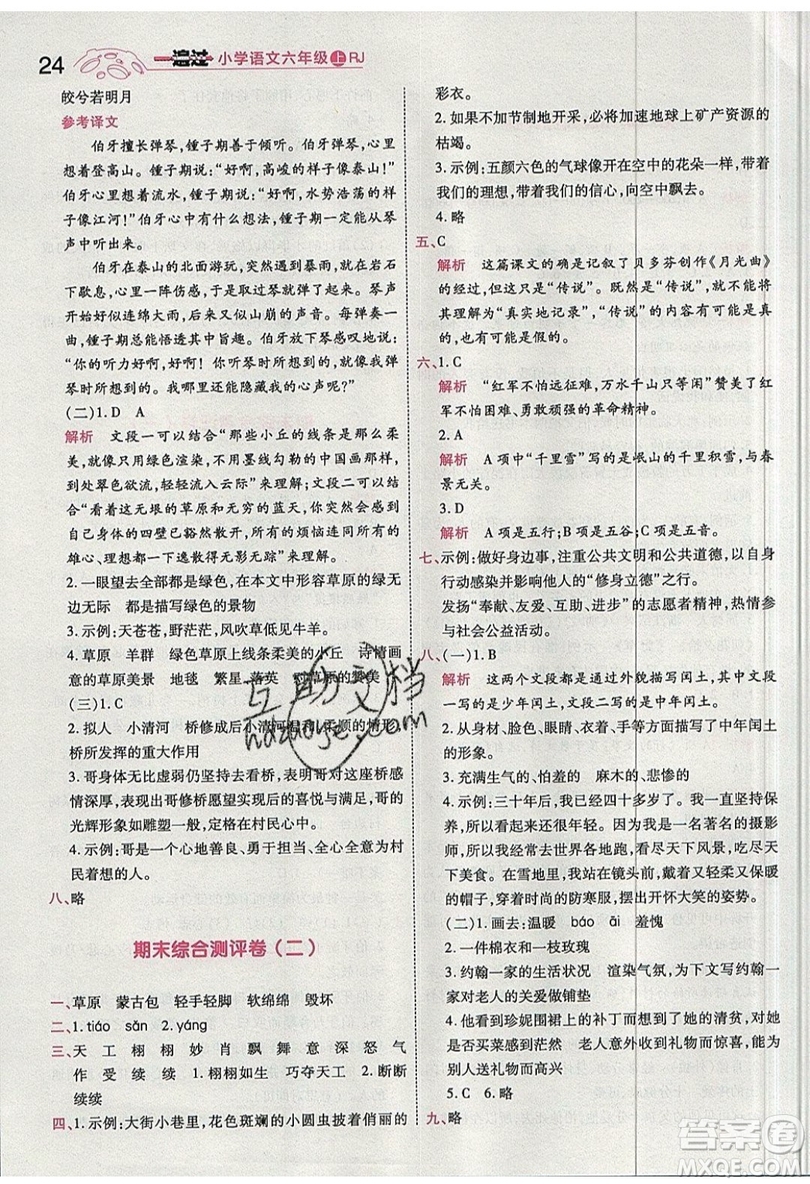 24 一遍过 小学语文六年级 上 RJ
皎兮若明月
参考译文
伯牙擅长弹琴,锺子期善于倾听。伯牙弹琴,心里
想着登高山。锺子期说:“好啊,高峻的样子像泰山!”
伯牙心里想着流水,锺子期说:“好啊,水势浩荡的样子
像江河!”伯牙心中有什么想法,锺子期一定会从琴声
中听出来。
伯牙在泰山的北面游玩,突然遇上暴雨,就在岩石
下歇息,心里一阵伤感,于是取出琴弹奏起来。琴声
开始好似连绵大雨,再又似山崩的声音。每弹奏一
曲,锺子期总能悟透其中旨趣。伯牙赞叹地说:
“你的听力好啊!听琴时所想到的,就像我弹
琴时所想到的。我哪里还能隐藏我的心声呢?”
(二)1.D A
解析 文段一可以结合“那些小丘的线条是那么柔
美,就像只用绿色渲染,不用墨线勾勒的中国画那样,
到处翠色欲流,轻轻流入云际”来理解;文段二可以结
合“看着无垠的草原和无穷的蓝天,你突然会感到自
己身体的四壁已豁然散开,所有的烦恼连同所有的雄
心、理想都一下逸散得无影无踪”来理解。
2.一眼望去全部都是绿色,在本文中形容草原的绿无
边无际 都是描写绿色的景物
3.示例:天苍苍,野茫茫,风吹草低见牛羊。
4.草原 羊群 绿色草原上线条柔美的小丘 诗情画
意的草原美景 地毯 繁星 落英 对草原的赞美
(三)1.C
2.拟人 小清河 桥修成后小清河温和、柔顺的情形
桥所发挥的重大作用
3.哥身体无比虚弱仍坚持去看桥,表明哥对这座桥感
情深厚,表达出哥修桥愿望实现后的喜悦与满足。哥的
光辉形象如雕塑一般,定格在村民心中。
4.示例:哥是一个心地善良、勇于担当、全心全意为村
民着想的人。
八、略
期末综合测评卷(二)
一、草原 蒙古包 轻手轻脚 软绵绵 毁坏
二、1.tiáo sǎn 2.yáng
三、天 工 栩 栩 妙 肖 飘 舞 意 深 怒 气
作 受 续 续 1.栩栩如生 巧夺天工 2.断断
续续
四、1.示例:大街小巷里,花色斑斓的小圆虫披着俏丽的
彩衣。
2.如果不加节制地开采,必将加速地球上矿产资源的
枯竭。
3.示例:五颜六色的气球像开在空中的花朵一样,带着
我们的理想,带着我们的信心,向空中飘去。
4.略
五、C
解析 这篇课文的确是记叙了贝多芬创作《月光曲》
的经过,但这只是“传说”。既然是“传说”,就不能将
其理解为“真实地记录”,“传说”的内容有可能是
真的,也有可能是假的。
六、1.C
解析 “红军不怕远征难,万水千山只等闲”赞美了红
军不怕困难、勇敢顽强的革命精神。
2.A
解析 A项中“千里雪”写的是岷山的千里积雪,与春
景无关。
3.D
解析 A项是五行;B项是五谷;C项是五音。
七、示例:做好身边事,注重公共文明和公共道德,以实际
行动感染并影响他人的“修身立德”之行。
发扬“奉献、友爱、互助、进步”的志愿者精神,热情参
与社会公益活动。
八、(一)1.B
解析 这两个文段都是通过外貌描写闰土的,文段
一写的是少年闰土,文段二写的是中年闰土。
2.从身材、脸色、眼睛、衣着、手等方面描写了中年闰土
的形象。
3.充满生气的、怕羞的 麻木的、悲惨的
4.示例:三十年后,我已经四十多岁了。但我一直坚持保
养,看起来还很年轻。我现在是一名著名的摄影
师,我用自己的脚步走遍天下,看尽天下风景,吃尽天
下美食。在雪地里,我站在镜头前,戴着能遮风保暖
的帽子,穿着时尚的防寒服,摆出开怀大笑的姿势。
(二)1.画去:温暖 báo āi 羞愧
2.一件棉衣和一枝玫瑰
3.交代约翰一家的生活状况 渲染气氛,为下文写约翰一
家对老人的关爱做铺垫
4.示例:他看到珍妮围裙上的补丁而想到她的清贫,对方
若买菜感到辛酸,为老人在意外中收到礼物而感动,也
为能够给别人送去礼物而高兴
5.C 6.略
九、略
互助文档
hzdocje.com
答案圈
MXQE.COM